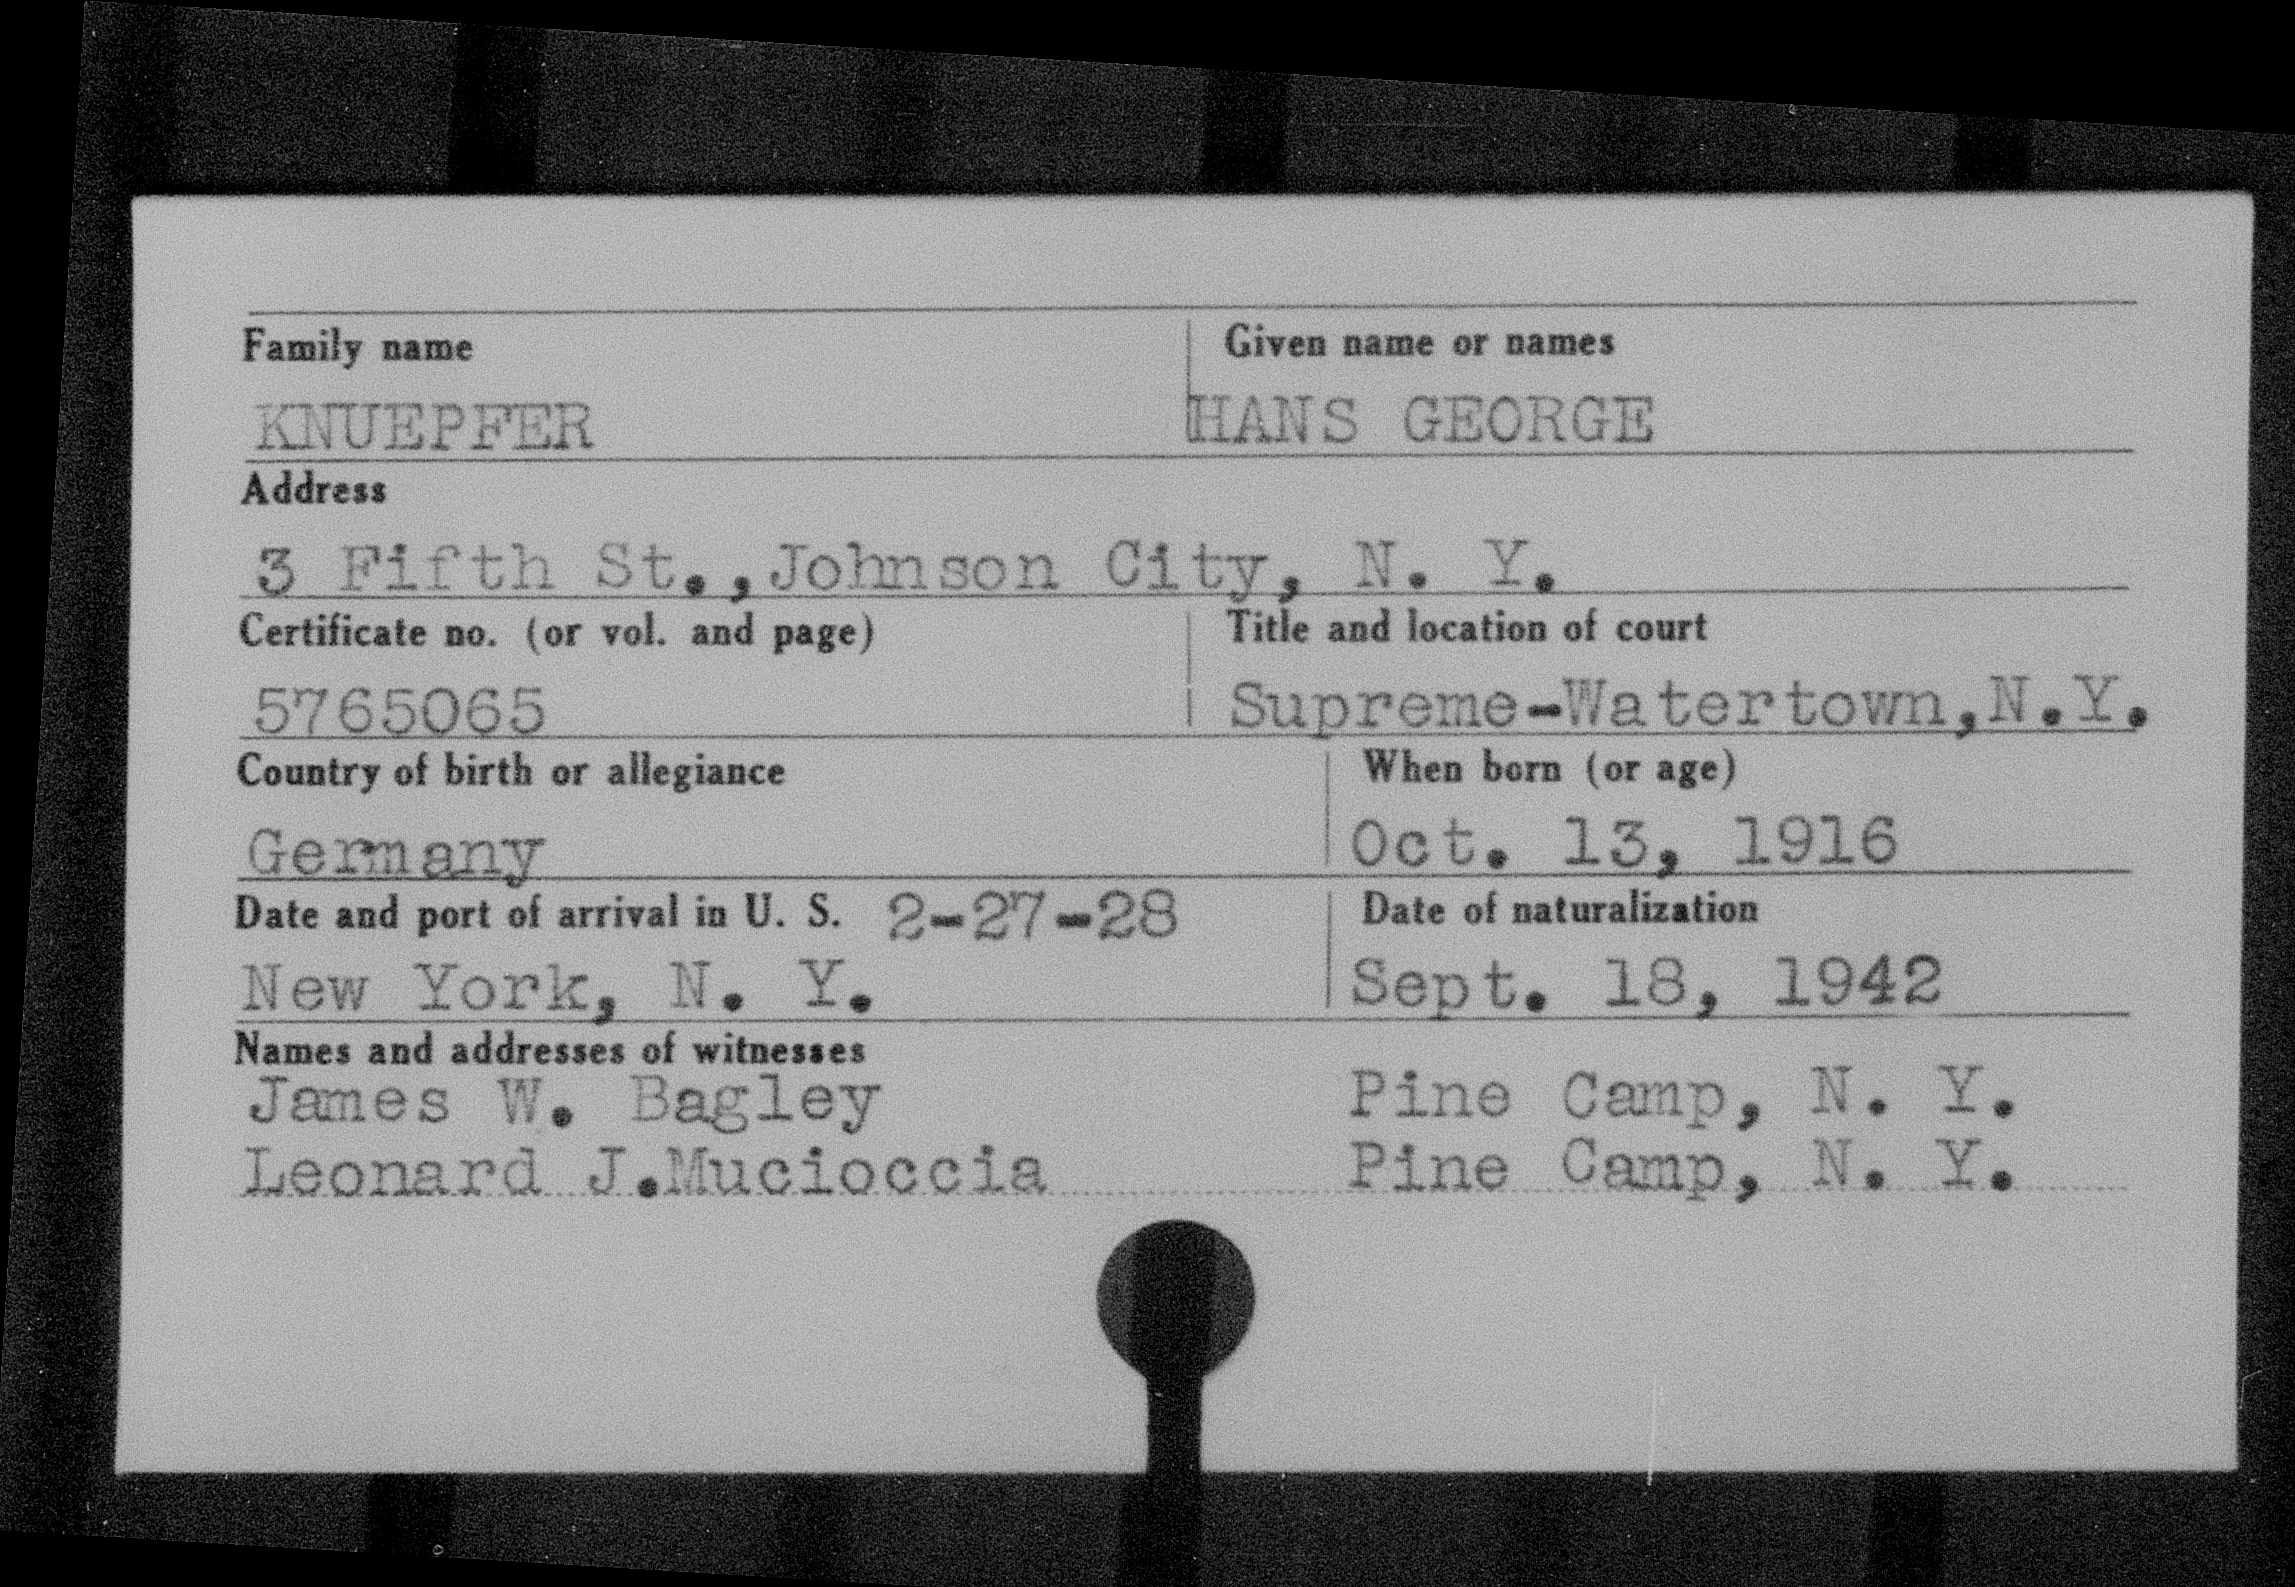 Family name Given name or names
KNUEPFER HANS GEORGE
Address
3 Fifth St.,Johnson City, N. Y.
Certificate no. (or vol. and page) Title and location of court
5765065 Supreme-Watertown,N.Y.
Country of birth or allegiance When born (or age)
Germany Oct. 13, 1916
Date and port of arrival in U. S. 2-27-28 Date of naturalization
New York, N. Y. Sept. 18, 1942
Names and addresses of witnesses
James W. Bagley Pine Camp, N. Y.
Leonard J.Mucioccia Pine Camp, N. Y.